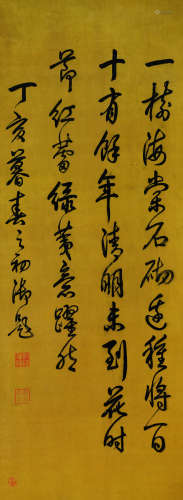 一樹海棠石砌邊種將百
十有餘年清明未到花時
節紅蕾綠羡意躍然
丁亥暮春之初御題